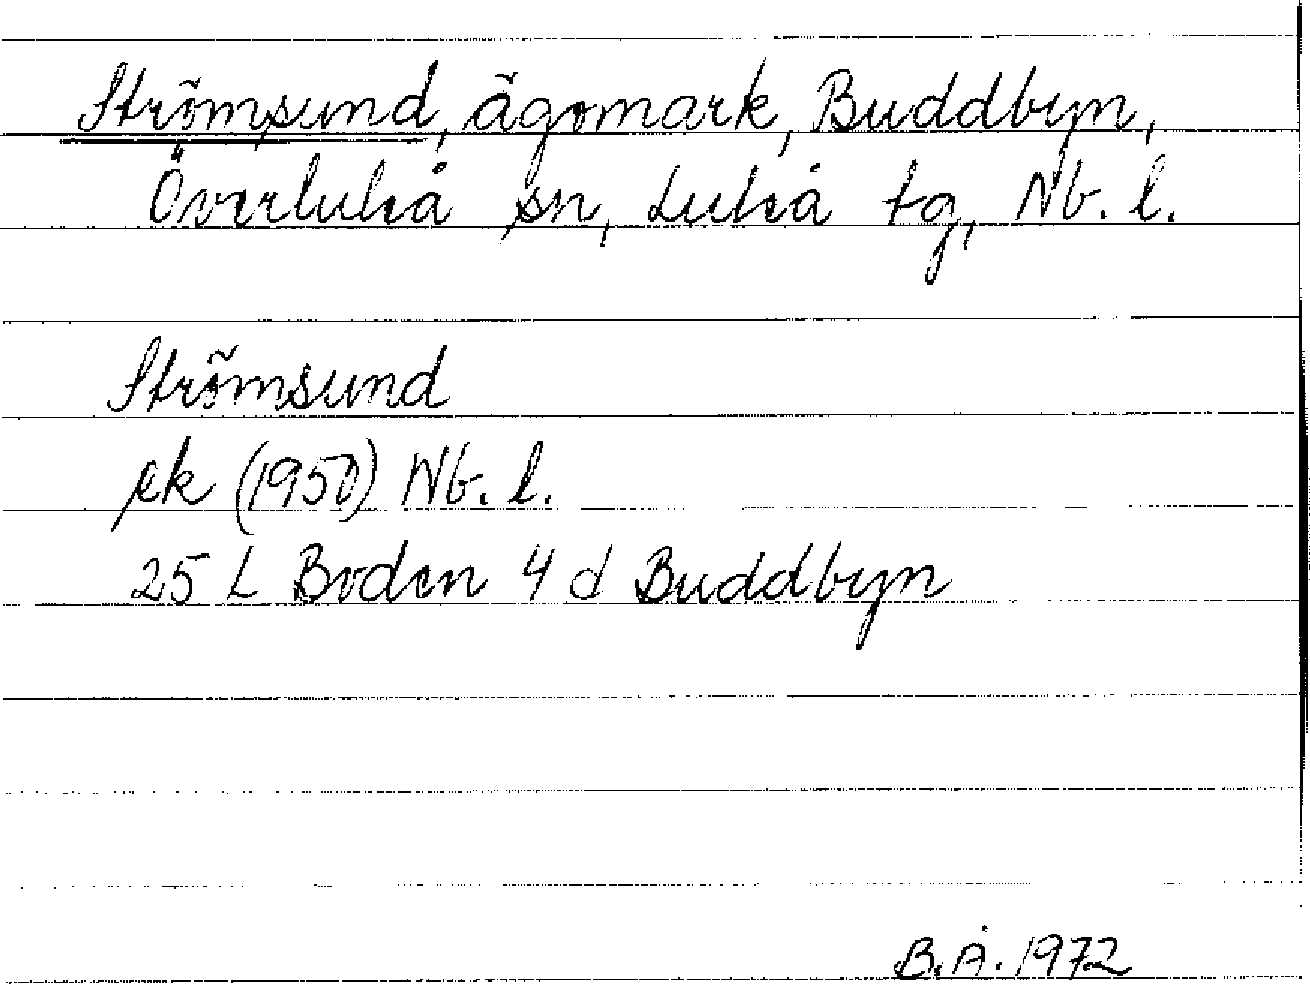 Strömsund, ägomark, Buddbyn,
Överluleå sn, Luleå tg, Nb. l.
Strömsund
ek (1950) Nb. l.
25 L Boden 4 d Buddbyn
B.Å. 1972